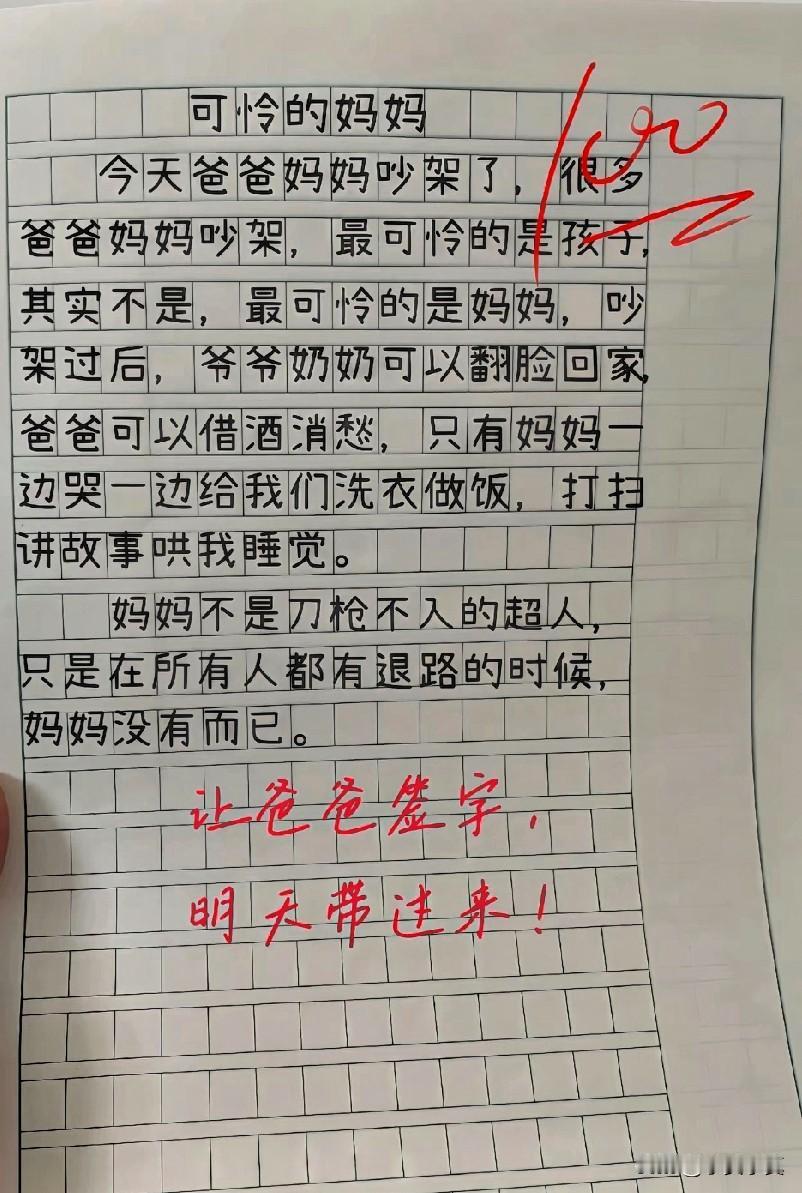 可怜的妈妈
100
今天爸爸妈妈吵架了，很多
爸爸妈妈吵架，最可怜的是孩子，
其实不是，最可怜的是妈妈，吵
架过后，爷爷奶奶可以翻脸回家，
爸爸可以借酒消愁，只有妈妈一
边哭一边给我们洗衣做饭，打扫
讲故事哄我睡觉。
妈妈不是刀枪不入的超人，
只是在所有人都有退路的时候，
妈妈没有而已。
让爸爸签字，
明天带过来！